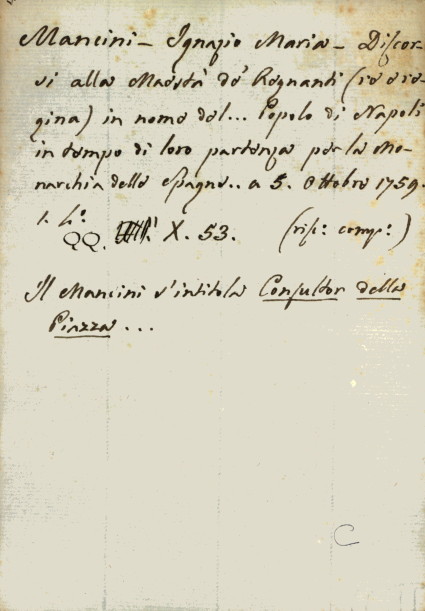 Mancini - Ignazio Maria - Discor-
si alla Maestà de' Regnanti (re e re-
gina) in nome del... Popolo di Napoli
in tempo di loro partenza per la Mo-
narchia delle Spagne.. a 5. Ottobre 1759.
1. 4°.
QQ. X. 53. (rif: comp:)
Il Mancini s'intitola Consultor della
Piazza ...
C